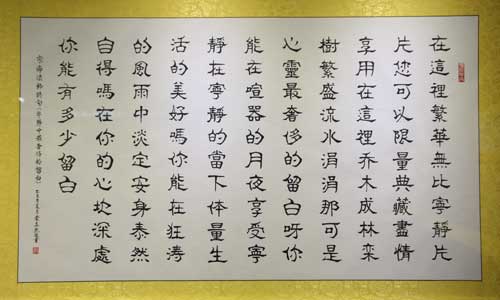 在這裡繁華無比寧靜片
片您可以限量典藏盡情
享用在這裡乔木成林栾
樹繁盛流水涓涓那可是
心靈最奢侈的留白呀你
能在喧器的月夜享受寧
靜在寧靜的當下体量生
活的美好嗎你能在狂濤
的風雨中淡定安身泰然
自得嗎在你的心坎深處
你能有多少留白